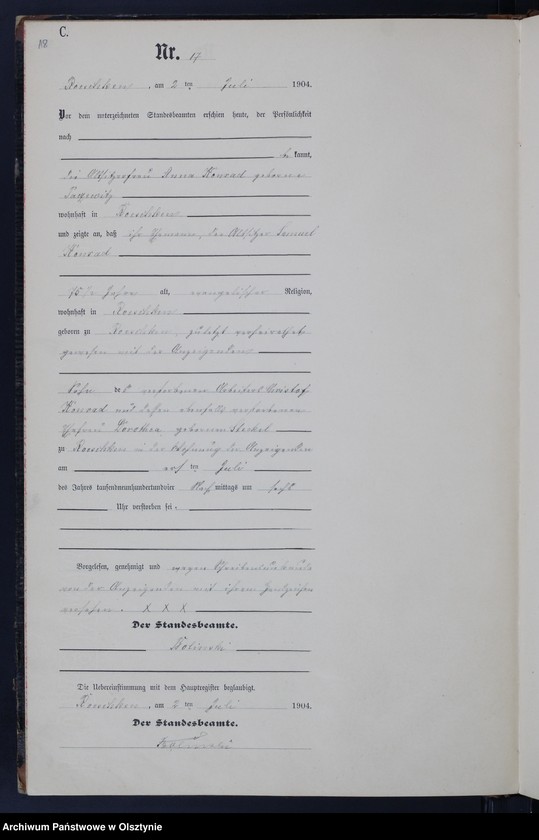 C.
Nr. 17
am 2 ten Juli 1904.
Vor dem unterzeichneten Standesbeamten erschien heute, der Persönlichkeit
nach
kannt,
die Altsitzerfrau Anna Konrad geborene
wohnhaft in
und zeigte an, daß ihr Ehemann, der Altsitzer Samuel
Konrad
75 1/2 Jahre alt, evangelischer Religion,
wohnhaft in
geboren zu zuletzt verheirathet
gewesen mit der Anzeigenden
Sohn des verstorbenen Arbeiters
Konrad und dessen ebenfalls verstorbenen
Ehefrau Dorothea geborenen
zu in der Wohnung der Anzeigenden
am ersten Juli
des Jahres tausendneunhundertundvier Nachmittags um sechs
Uhr verstorben sei.
Vorgelesen, genehmigt und wegen
von der Anzeigenden mit ihrem Handzeichen
versehen. X X X
Der Standesbeamte.
Die Uebereinstimmung mit dem Hauptregister beglaubigt.
am 2 ten Juli 1904.
Der Standesbeamte.
Archiwum Państwowe w Olsztynie